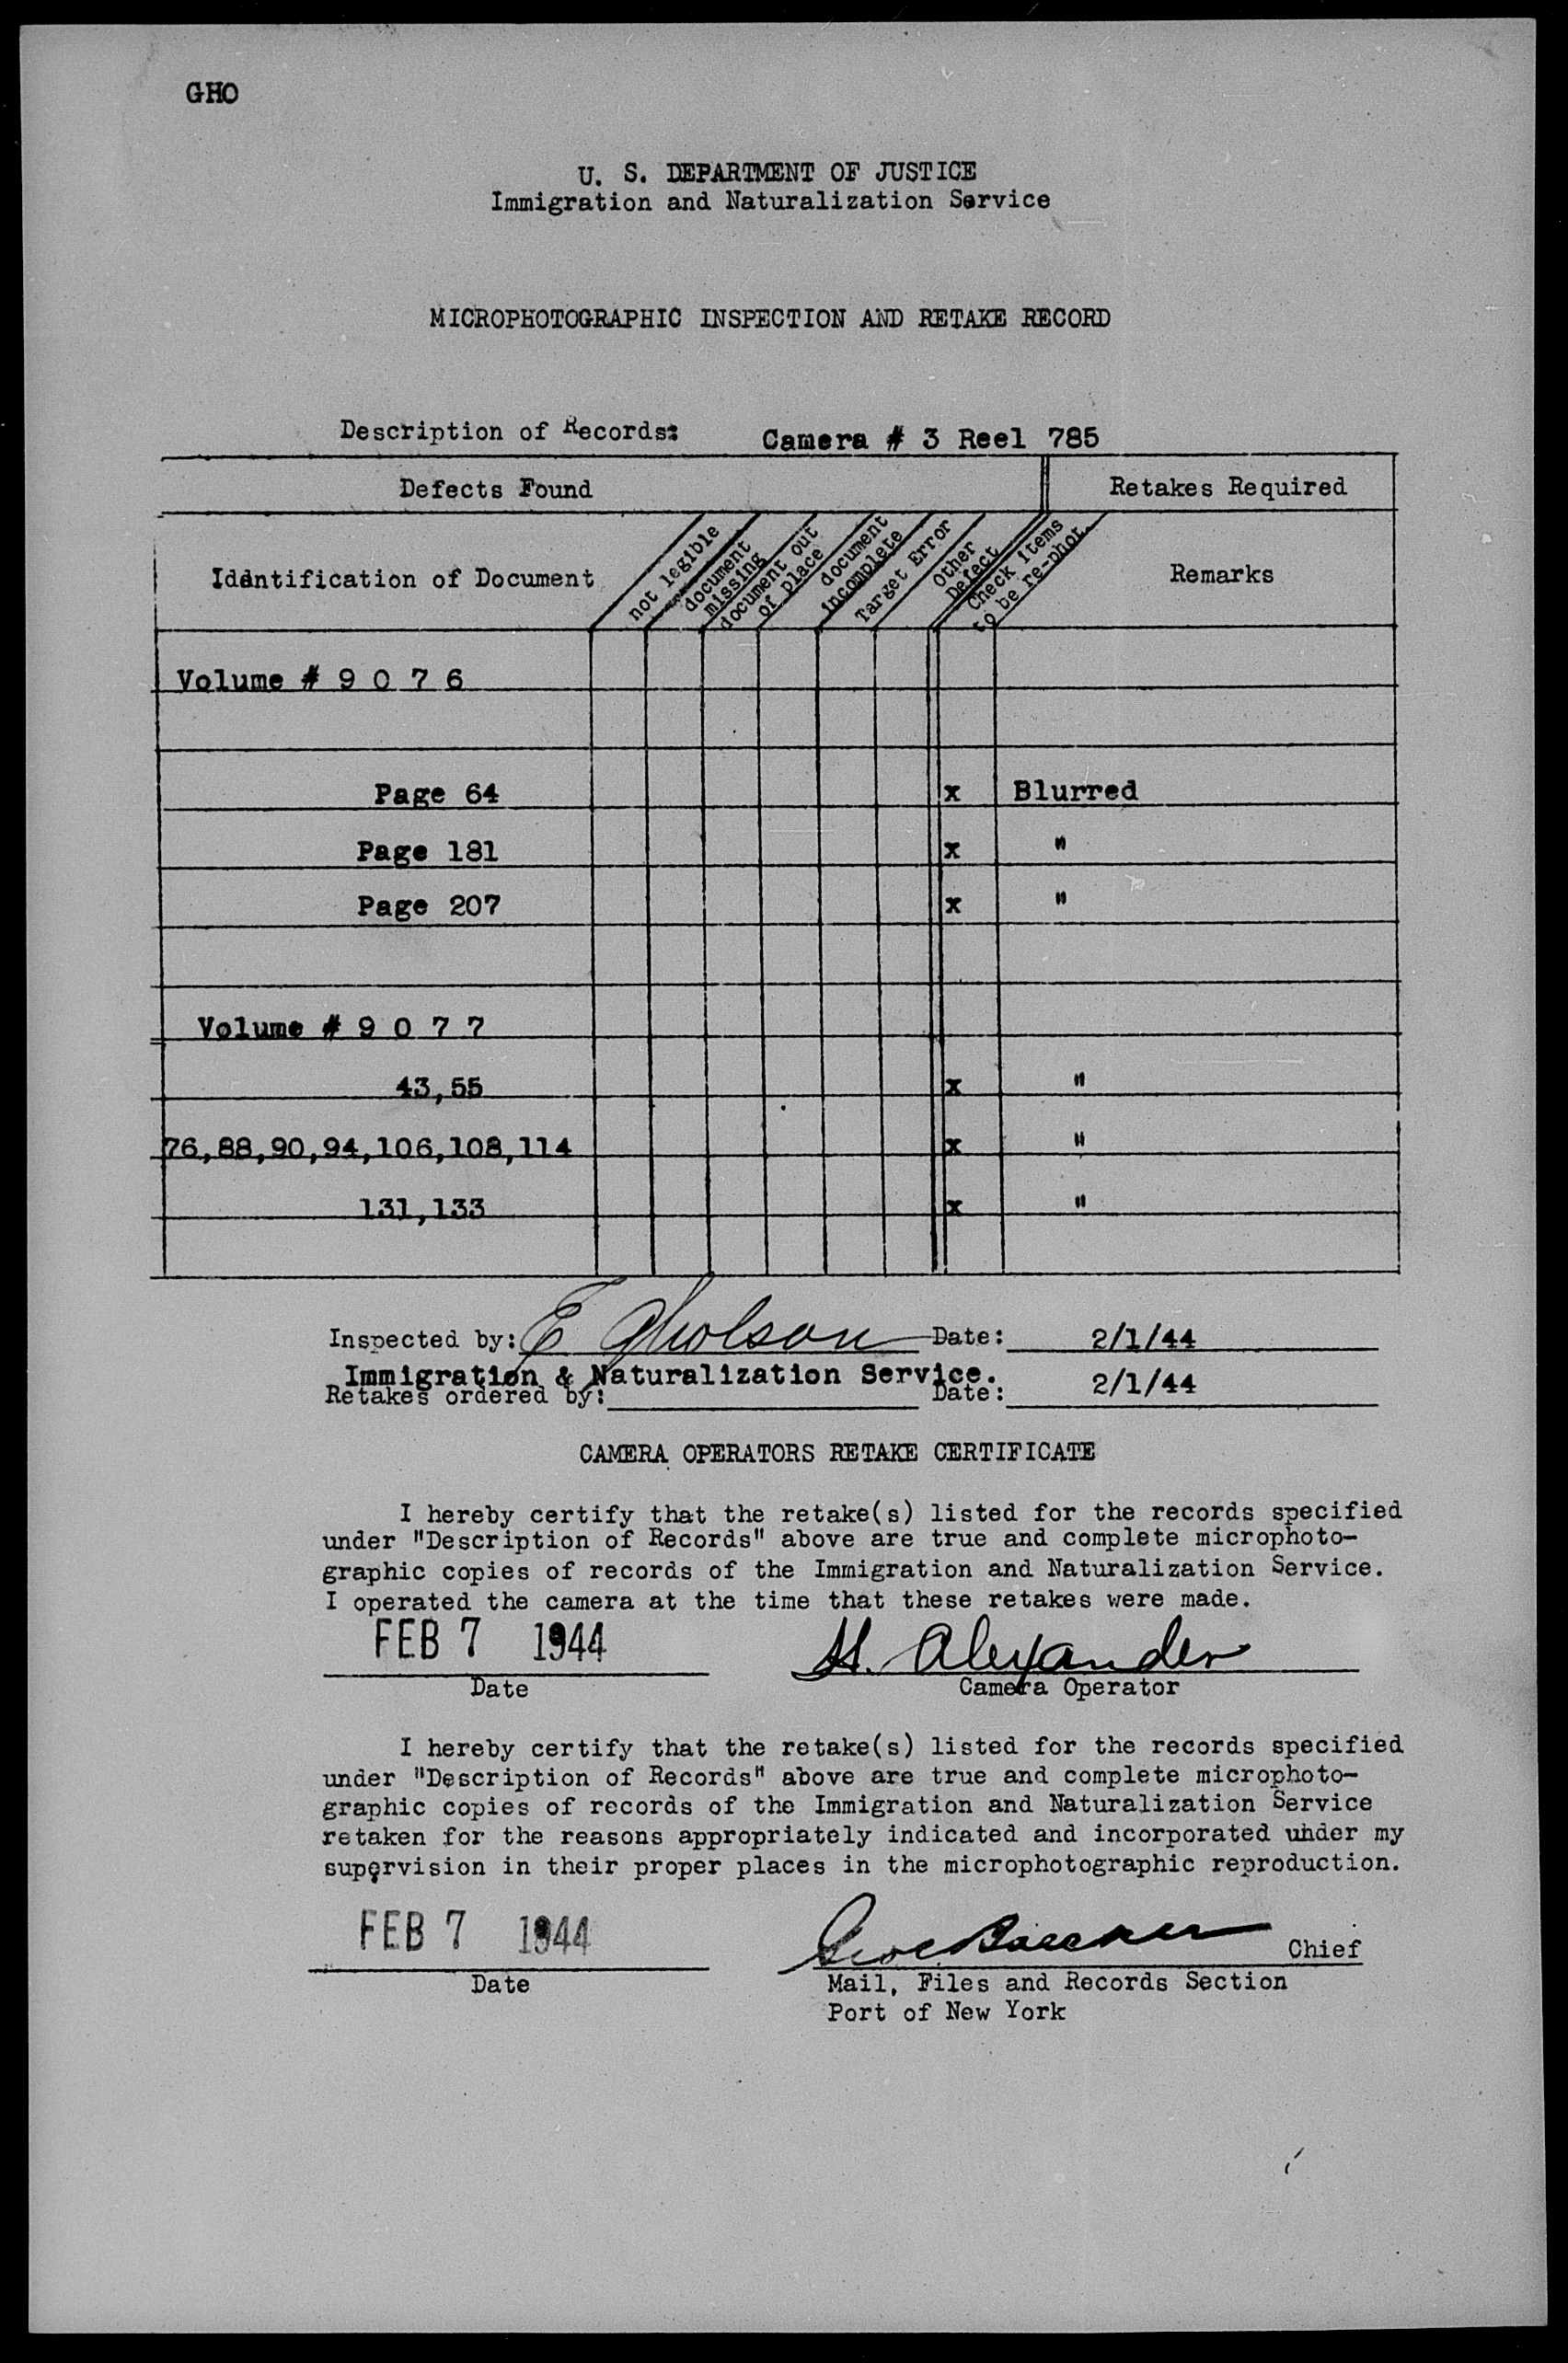 GHO
U. S. DEPARTMENT OF JUSTICE
Immigration and Naturalization Service
MICROPHOTOGRAPHIC INSPECTION AND RETAKE RECORD
Description of Records: Camera # 3 Reel 785
Defects Found Retakes Required
Idantification of Document
not legible
document missing
document out of place
document incomplete
Target Error
Other Defect
Check items to be re-phot.
Remarks
Volume # 9 0 7 6
Page 64 x Blurred
Page 181 x "
Page 207 x "
Volume # 9 0 7 7
43,55 x "
76,88,90,94,106,108,114 x "
131,133 x "
Inspected by: E Gholson Date: 2/1/44
Immigration & Naturalization Service.
Retakes ordered by: Date: 2/1/44
CAMERA OPERATORS RETAKE CERTIFICATE
I hereby certify that the retake(s) listed for the records specified
under "Description of Records" above are true and complete microphoto-
graphic copies of records of the Immigration and Naturalization Service.
I operated the camera at the time that these retakes were made.
FEB 7 1944 H. Alexander
Date Camera Operator
I hereby certify that the retake(s) listed for the records specified
under "Description of Records" above are true and complete microphoto-
graphic copies of records of the Immigration and Naturalization Service
retaken for the reasons appropriately indicated and incorporated under my
supervision in their proper places in the microphotographic reproduction.
FEB 7 1944 Chief
Date Mail, Files and Records Section
Port of New York